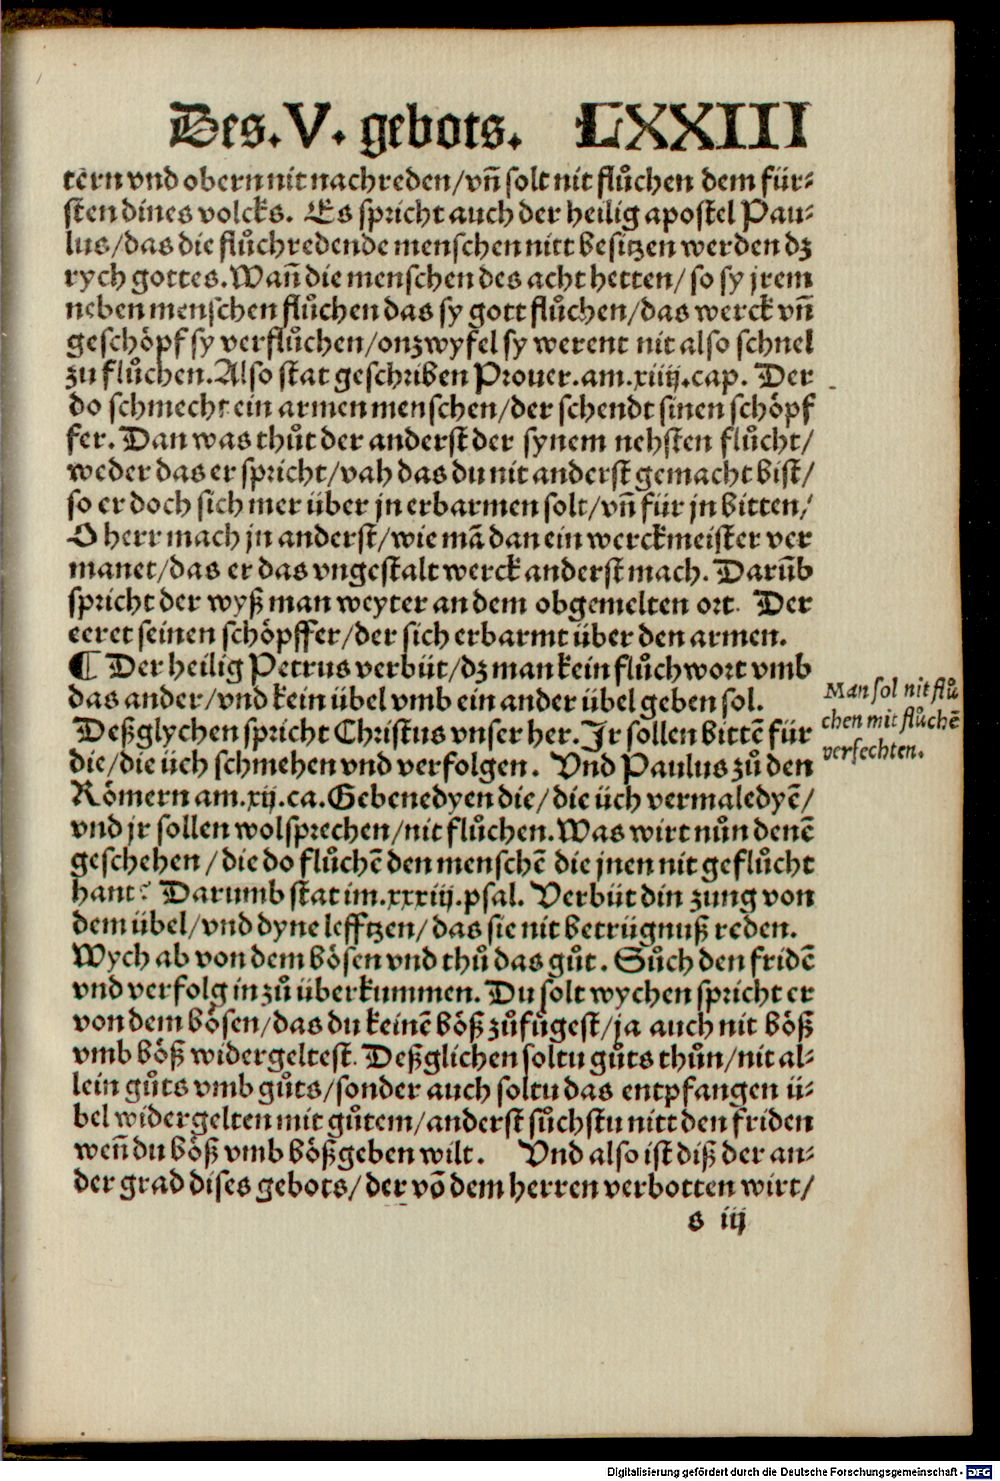 Des. V. gebots. LXXIII
tern vnd obern nit nachreden/vn̄ solt nit flůchen dem für⸗
sten dines volcks. Es spricht auch der heilig apostel Pau⸗
lus/das die flůchredende menschen nitt besitzen werden dz
rych gottes. Wan̄ die menschen des acht hetten/ so sy jrem
neben menschen flůchen das sy gott flůchen/das werck vn̄
geschöpf sy verflůchen/onzwyfel sy werent nit also schnel
zu flůchen. Also stat geschriben Prouer. am. xiiij. cap. Der
do schmecht ein armen menschen/der schendt sinen schöpf
fer. Dan was thůt der anderst der synem nehsten flůcht/
weder das er spricht/vah das du nit anderst gemacht bist/
so er doch sich mer über jn erbarmen solt/vn̄ für jn bitten/
O herr mach jn anderst/wie mā dan ein werckmeister ver
manet/das er das vngestalt werck anderst mach. Darūb
spricht der wyß man weyter an dem obgemelten ort. Der
eeret seinen schöpffer/der sich erbarmt über den armen.
¶ Der heilig Petrus verbüt/dz man kein flůchwort vmb
das ander/vnd kein übel vmb ein ander übel geben sol.
Man sol nit flů
chen mit flůchē
versechten.
Deßglychen spricht Christus vnser her. Jr sollen bittē für
die/die üch schmehen vnd verfolgen. Vnd Paulus zů den
Römern am. xij. ca. Gebenedyen die/die üch vermaledyē/
vnd jr sollen wolsprechen/nit flůchen. Was wirt nůn denē
geschehen/die do flůchē den menschē die jnen nit geflůcht
hant? Darumb stat im. xxxiij. psal. Verbüt din zung von
dem übel/vnd dyne lefftzen/das sie nit betrügnuß reden.
Wych ab von dem bösen vnd thů das gůt. Sůch den fridē
vnd verfolg in zů überkummen. Du solt wychen spricht er
von dem bösen/das du keinē böß zůfůgest/ja auch nit böß
vmb böß widergeltest. Deßglichen soltu gůts thůn/nit al⸗
lein gůts vmb gůts/sonder auch soltu das entpfangen ü⸗
bel widergelten mit gůtem/anderst sůchstu nitt den friden
wen̄ du böß vmb böß geben wilt. Vnd also ist diß der an⸗
der grad dises gebots/der vō dem herren verbotten wirt/
s iij
Digitalisierung gefördert durch die Deutsche Forschungsgemeinschaft - DFG